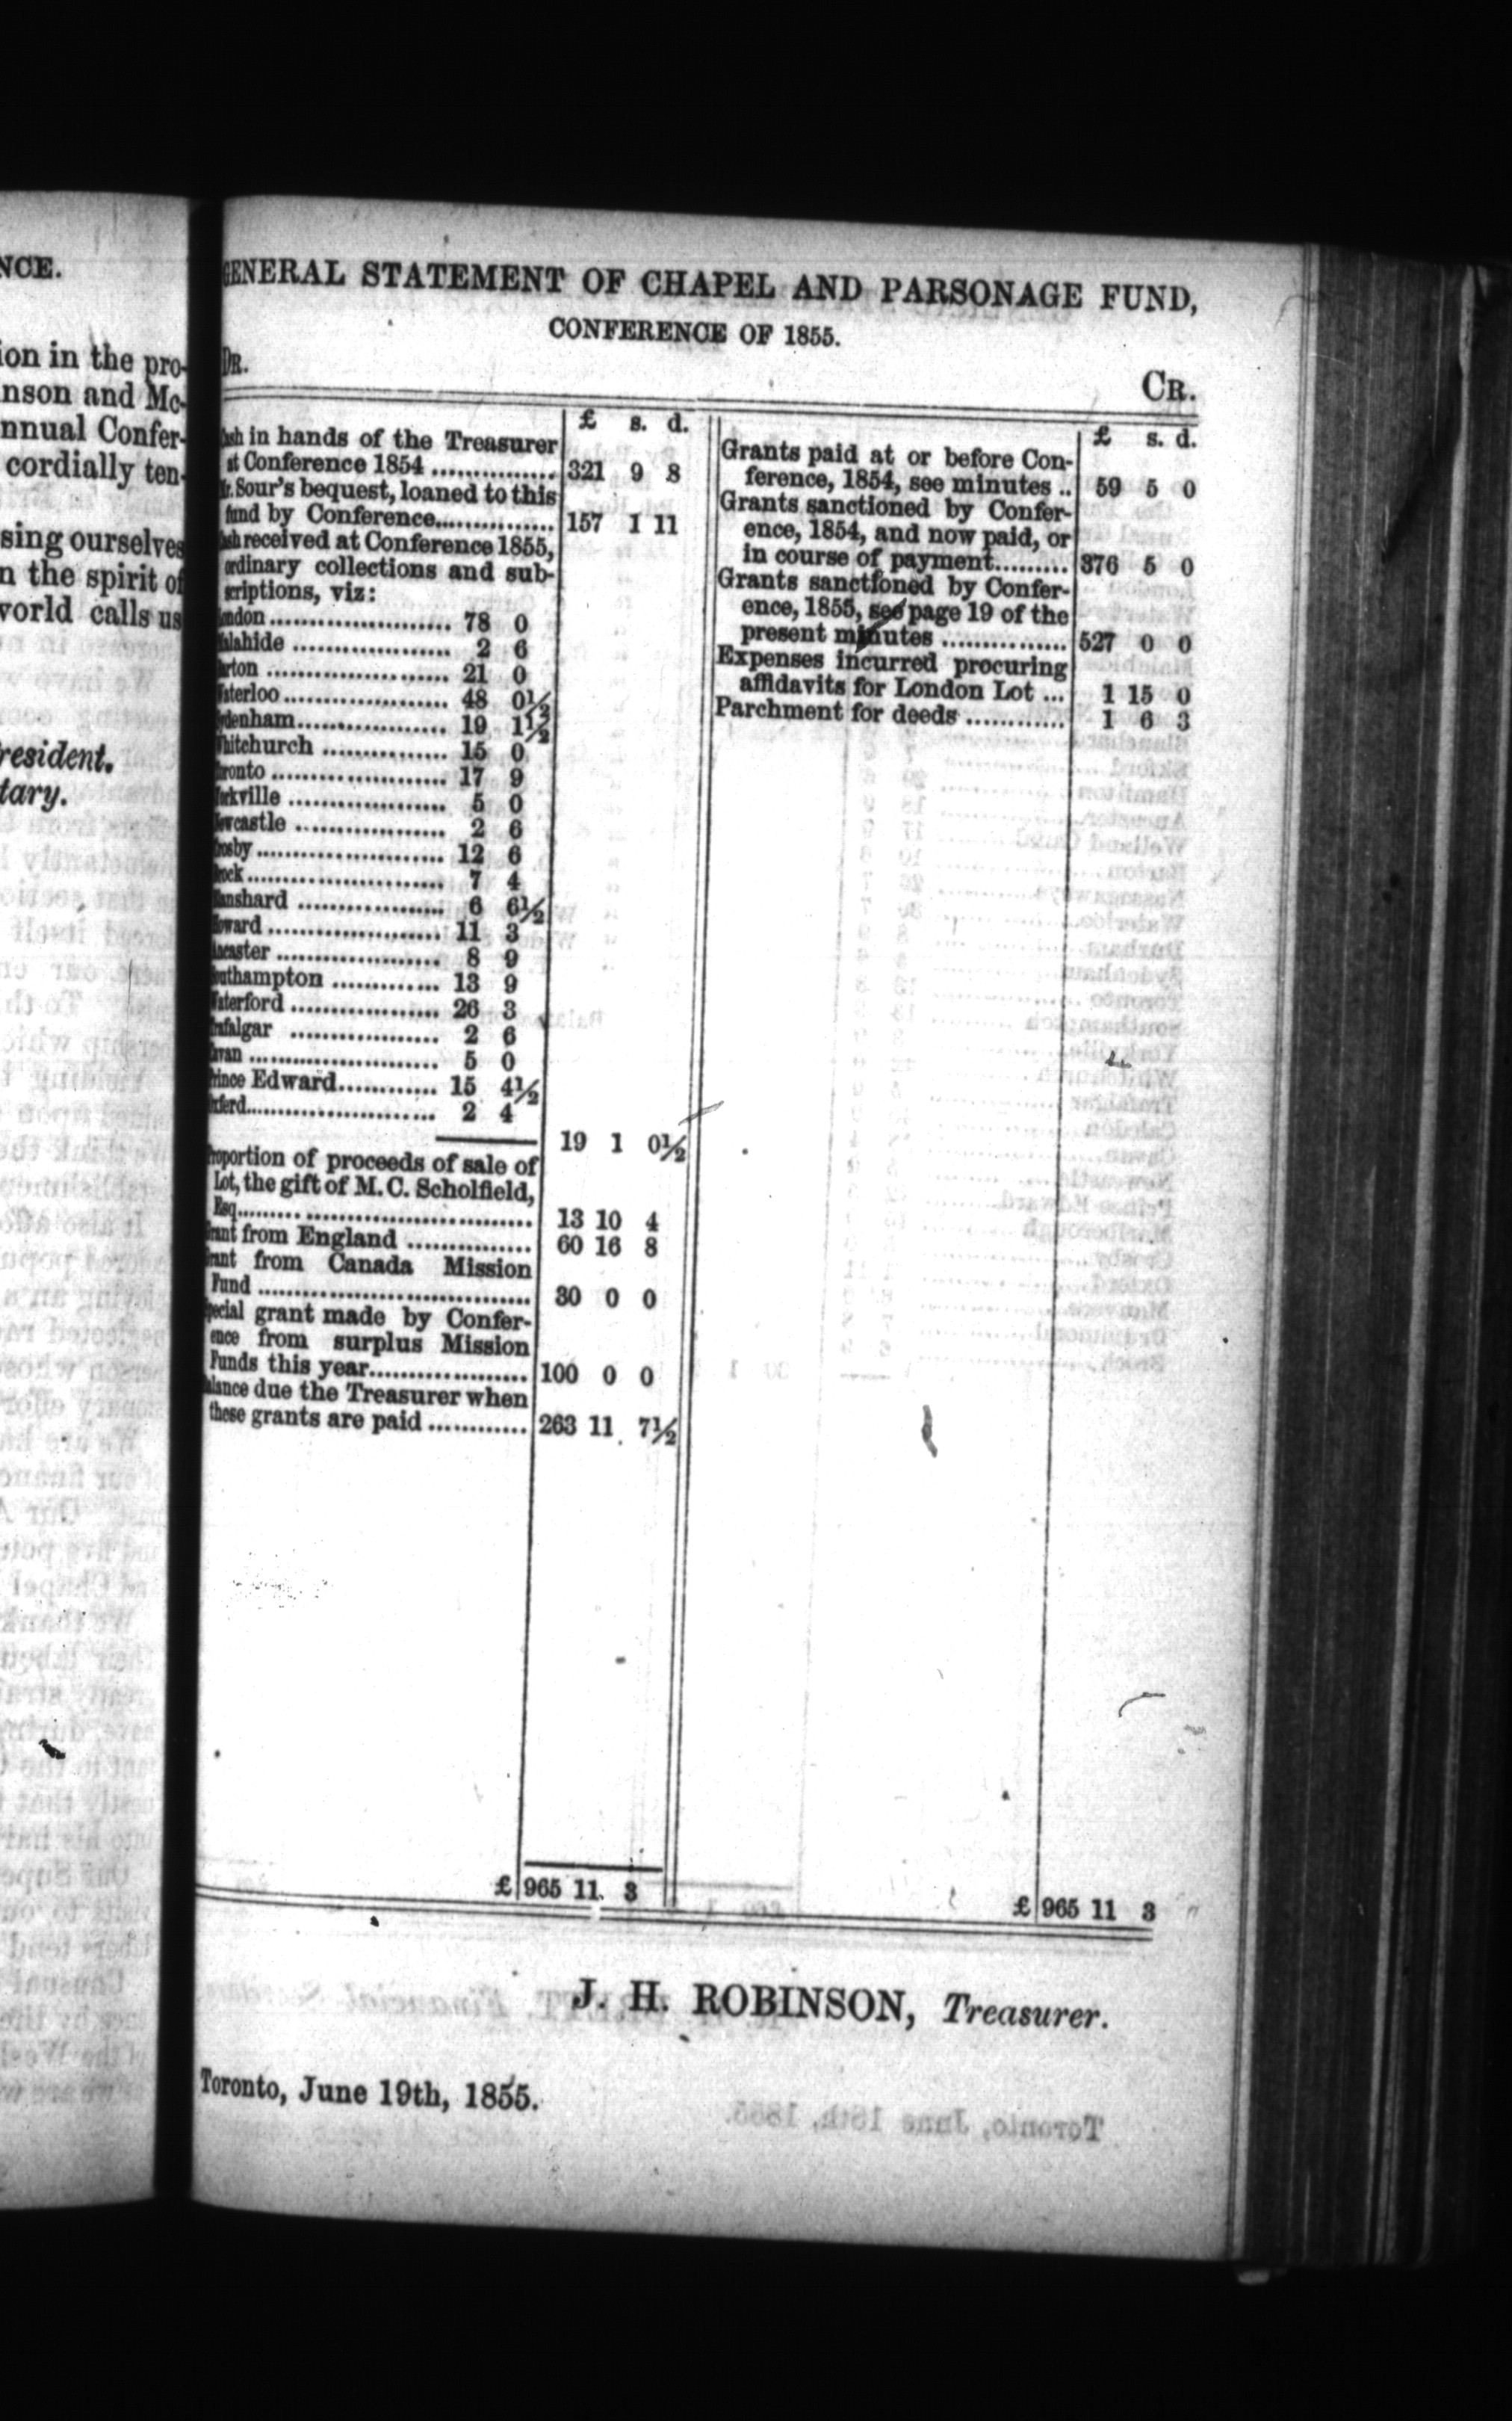 NCE.
ion in the pro-
nson and Mc-
nnual Confer-
cordially ten-
sing ourselves
n the spirit of
world calls us
resident.
tary.
GENERAL STATEMENT OF CHAPEL AND PARSONAGE FUND,
CONFERENCE OF 1855.
DR.
CR.
£ s. d.
Cash in hands of the Treasurer
at Conference 1854 ............... 321 9 8
Mr. Sour's bequest, loaned to this
fund by Conference............... 157 1 11
Cash received at Conference 1855,
ordinary collections and sub-
scriptions, viz:
London ....................... 78 0
Malahide .................... 2 6
Barton ....................... 21 0
Waterloo ..................... 48 0½
Sydenham................... 19 1½
Whitchurch ................ 15 0
Toronto ...................... 17 9
Yorkville .................... 5 0
Newcastle ................... 2 6
Crosby........................ 12 6
Brock......................... 7 4
Blanshard ................... 6 6½
Howard ...................... 11 3
Ancaster ..................... 8 9
Southampton ............. 13 9
Waterford ................... 26 3
Trafalgar ................... 2 6
Cavan ........................ 5 0
Prince Edward............ 15 4½
Oxferd........................ 2 4
19 1 0½
Proportion of proceeds of sale of
Lot, the gift of M. C. Scholfield,
Esq..................................... 13 10 4
Grant from England ............... 60 16 8
Grant from Canada Mission
Fund .................................. 30 0 0
Special grant made by Confer-
ence from surplus Mission
Funds this year.................... 100 0 0
Balance due the Treasurer when
these grants are paid ............ 263 11 7½
£ 965 11 3
£ s. d.
Grants paid at or before Con-
ference, 1854, see minutes .. 59 5 0
Grants sanctioned by Confer-
ence, 1854, and now paid, or
in course of payment......... 376 5 0
Grants sanctioned by Confer-
ence, 1855, see page 19 of the
present minutes ............... 527 0 0
Expenses incurred procuring
affidavits for London Lot ... 1 15 0
Parchment for deeds ............ 1 6 3
£ 965 11 3
J. H. ROBINSON, Treasurer.
Toronto, June 19th, 1855.